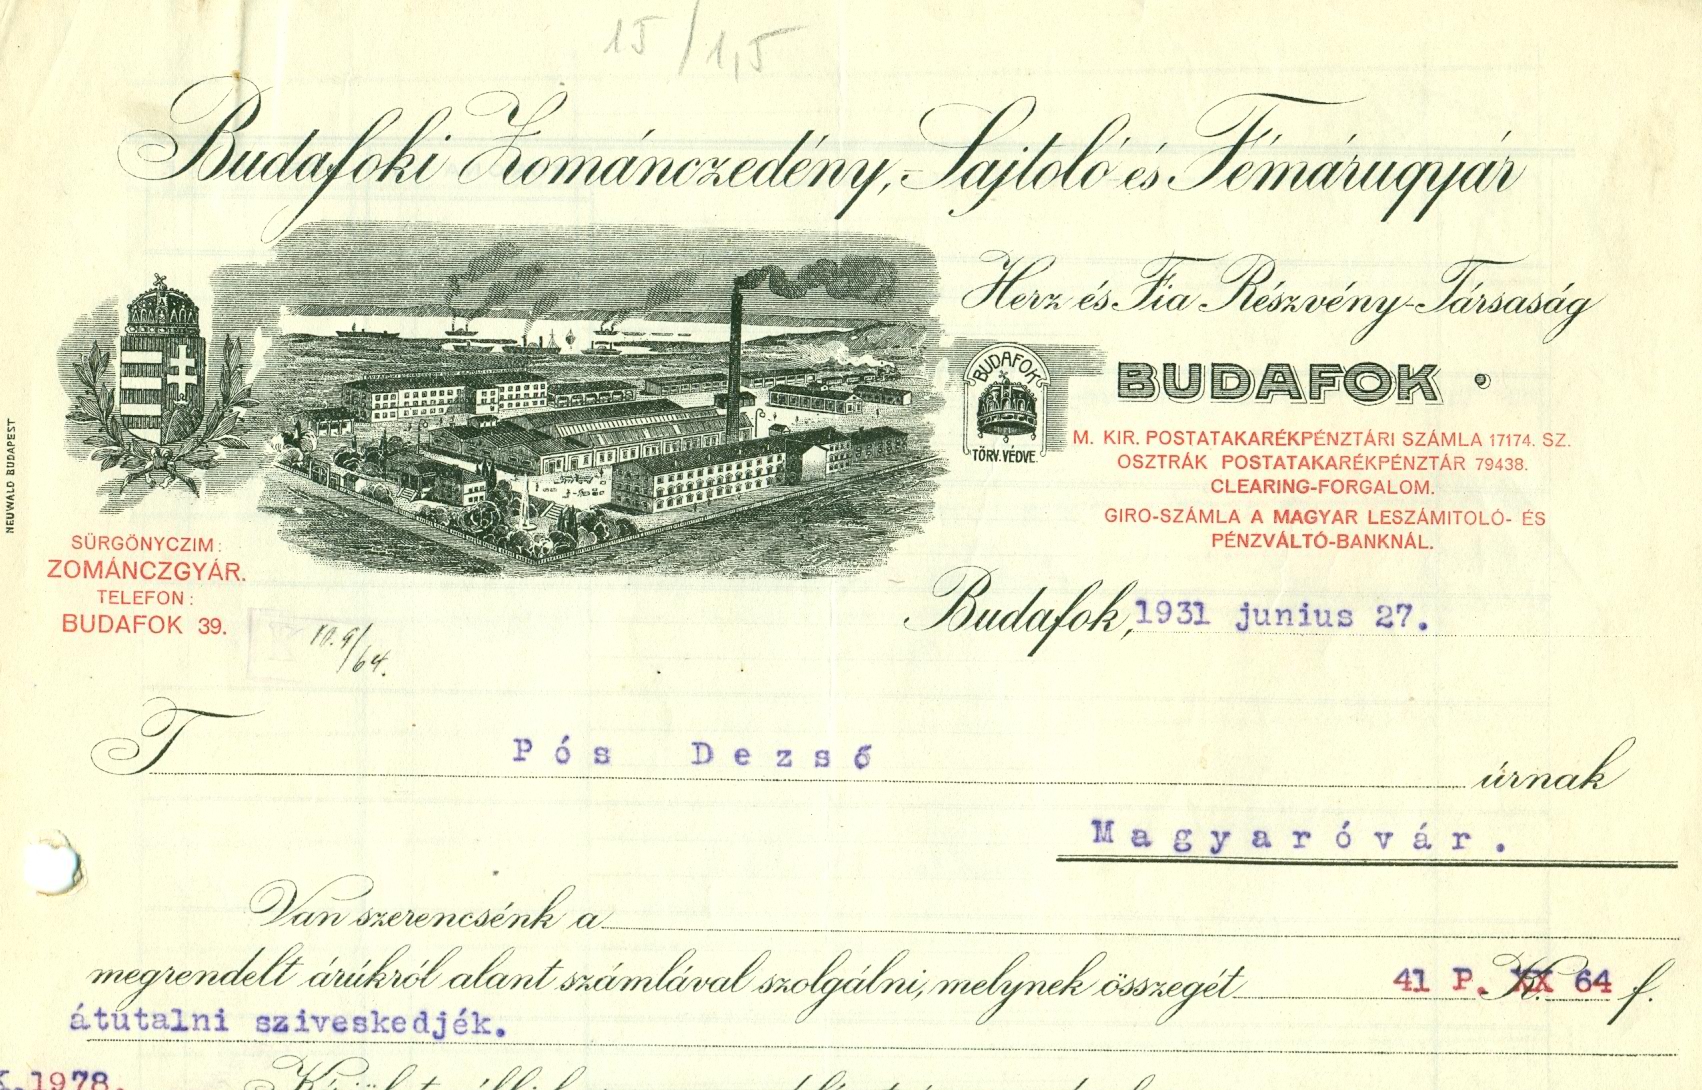 15/1,5
Budafoki Zománczedény,-Sajtoló és Fémárugyár
Herz és Fia Részvény-Társaság
BUDAFOK
TÖRV. VÉDVE.
BUDAFOK •
M. KIR. POSTATAKARÉKPÉNZTÁRI SZÁMLA 17174. SZ.
OSZTRÁK POSTATAKARÉKPÉNZTÁR 79438.
CLEARING-FORGALOM.
GIRO-SZÁMLA A MAGYAR LESZÁMITOLÓ- ÉS
PÉNZVÁLTÓ-BANKNÁL.
NEUWALD BUDAPEST
SÜRGÖNYCZIM:
ZOMÁNCZGYÁR.
TELEFON:
BUDAFOK 39.
10.9/64.
Budafok, 1931 junius 27.
T Pós Dezső úrnak
Magyaróvár.
Van szerencsénk a
megrendelt árúkról alant számlával szolgálni, melynek összegét 41 P. XX 64 f.
átutalni sziveskedjék.
K.1978.